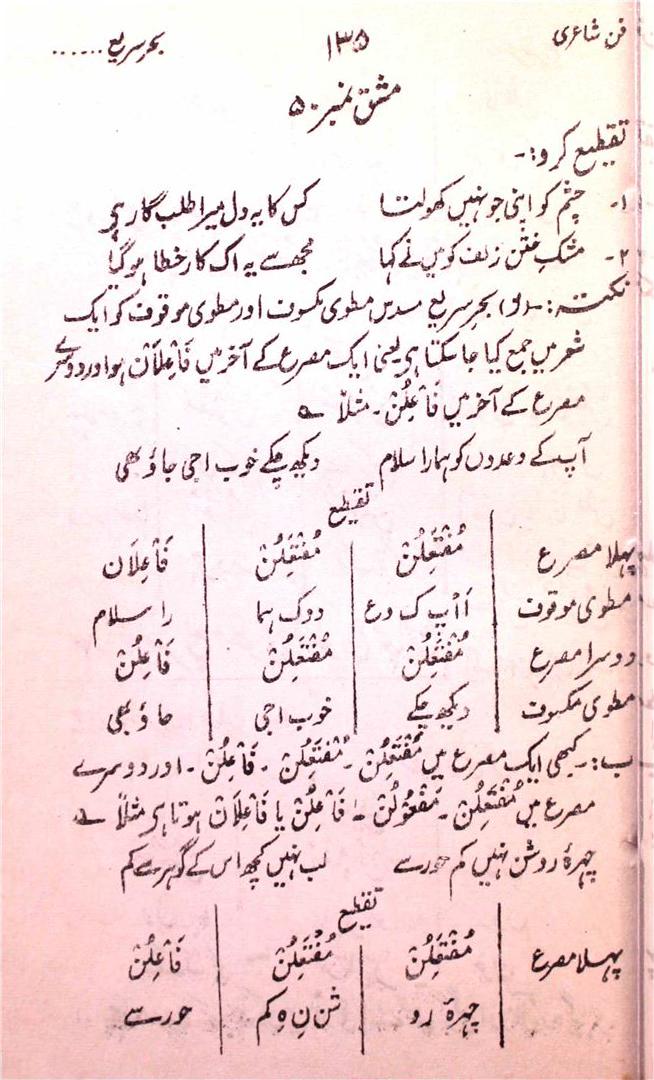 فن شاعری ۱۳۵ بحر سریع ......
مشق نمبر ۵۰
تقطیع کرو:-
۱- چشم کو اپنی جو نہیں کھولتا کس کا یہ دل میرا طلبگار ہی
۲- مشکِ ختن زلف کو میں نے کہا مجھ سے یہ اک کار خطا ہو گیا
نکتہ:- (ا) بحر سریع مسدس مطوی مکسوف اور مطوی موقوف کو ایک
شعر میں جمع کیا جا سکتا ہی یعنی ایک مصرع کے آخر میں فَاْعِلَاَنْ ہو اور دوسرے
مصرع کے آخر میں فَاْعِلُنْ - مثلاً ے
آپ کے وعدوں کو ہمارا سلام دیکھ چکے خوب اجی جاؤ بھی
تقطیع
پہلا مصرع مُفْتَعِلُنْ مُفْتَعِلُنْ فَاْعِلَان
مطوی موقوف اَاْپ ک وع دوک ہما را سلام
دوسرا مصرع مُفْتَعِلُنْ مُفْتَعِلُنْ فَاْعِلُنْ
مطوی مکسوف دیکھ چکے خوب اجی جاؤ بھی
ب:- کبھی ایک مصرع میں مُفْتَعِلُنْ - مُفْتَعِلُنْ - فَاْعِلُنْ - اور دوسرے
مصرع میں مُفْتَعِلُنْ - مَفْعُوْلُنْ - فَاْعِلُنْ یا فَاْعِلَانْ ہوتا ہی مثلاً ے
چہرۂ روشن نہیں کم حور سے لب نہیں کچھ اس کے گوہر سے کم
تقطیع
پہلا مصرع مُفْتَعِلُنْ مُفْتَعِلُنْ فَاْعِلُنْ
چہرۂ رو شن نِ ہِ کم حور سے